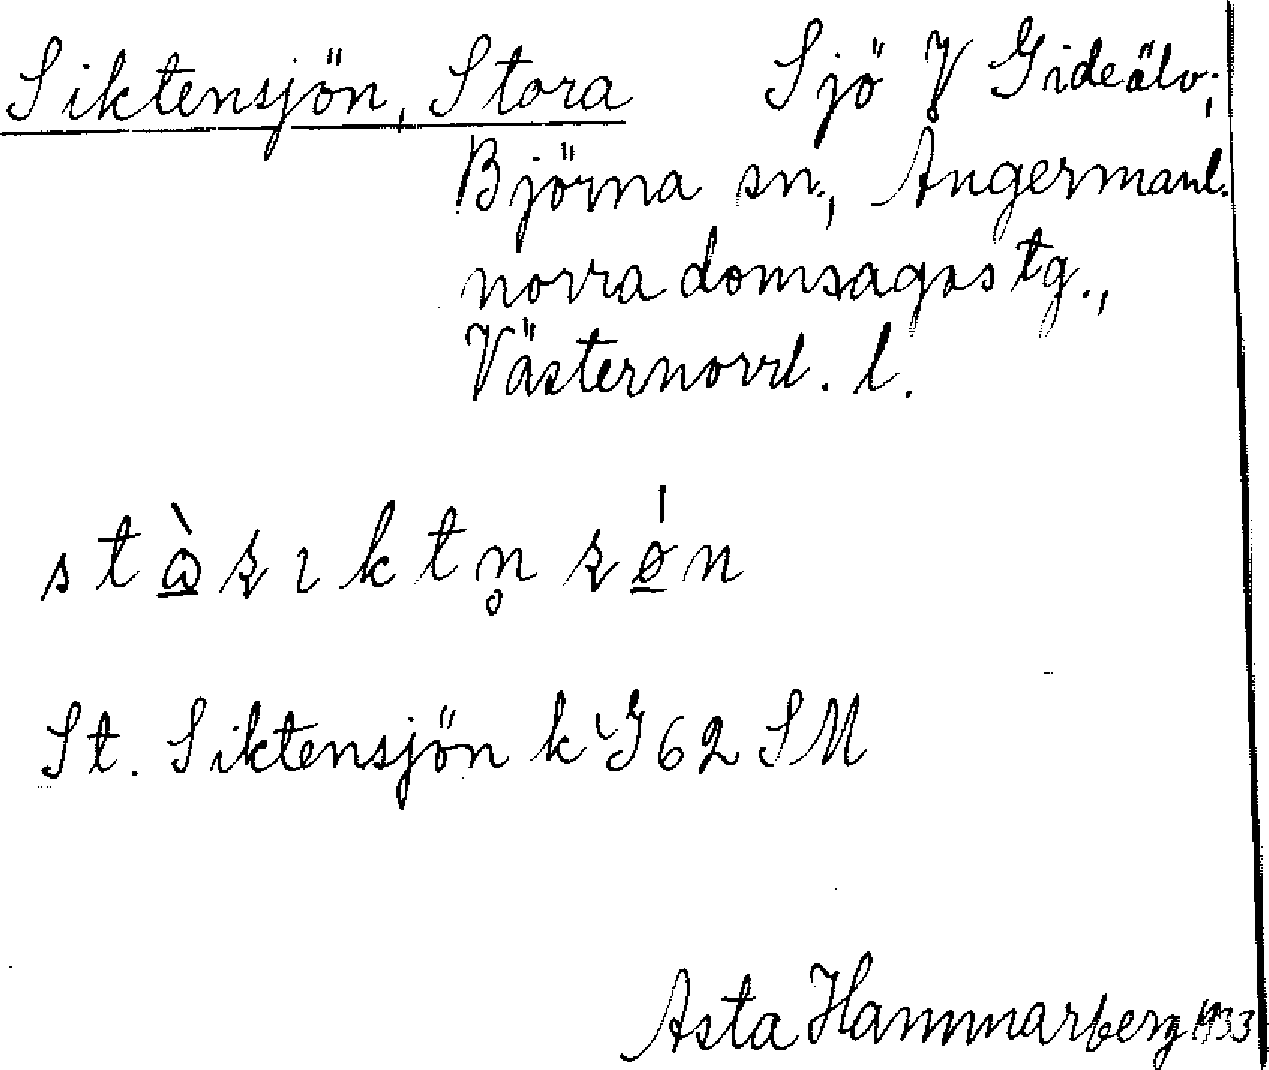 Siktensjön, Stora Sjö V Gideälv;
Björna sn., Ångermanl.
norra domsagas tg.,
Västernorrl. l.
St. Siktensjön k G 62 SM
Asta Hammarberg 1933